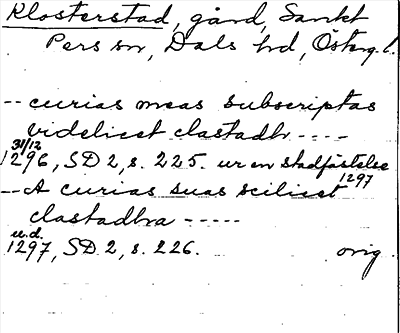 Klosterstad, gård, Sankt
Pers sn, Dals hd, Österg. l.
-- curias meas subscriptas
videlicet clastadh. ----
31/12
1296, SD 2, s. 225. ur en stadfästelse
1297
-- A curias suas scilicet
clastadhra -----
u.d.
1297, SD 2, s. 226. orig.